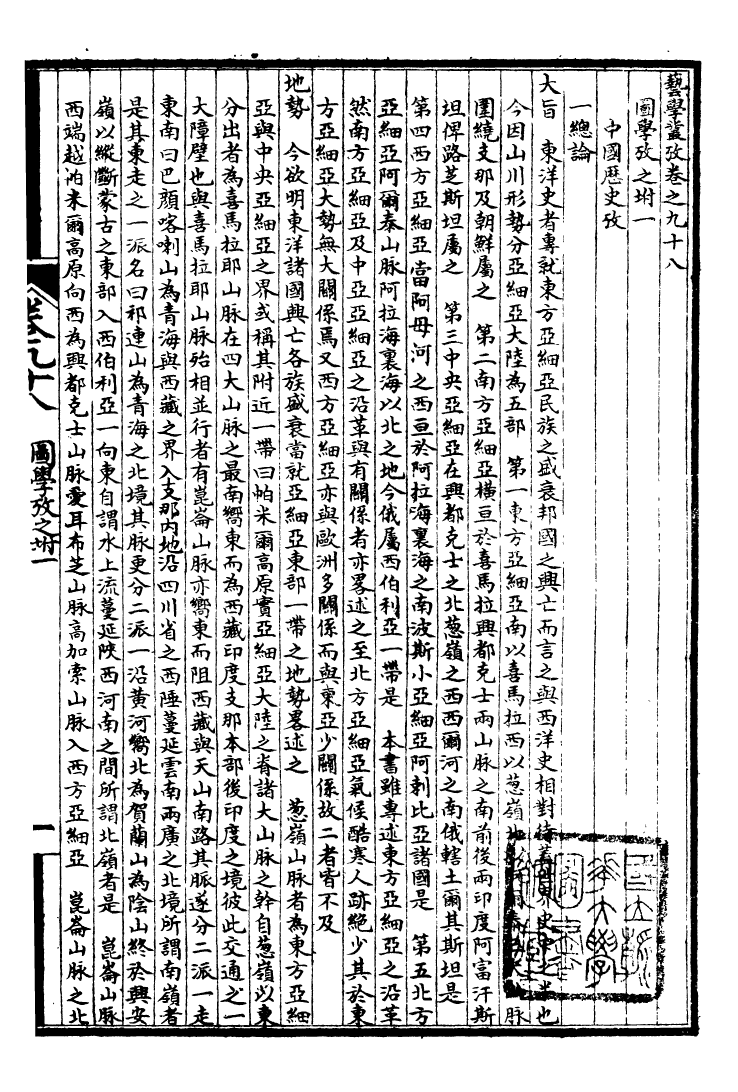 藝學叢攷卷之九十八
圖學攷之坿一
中國歷史攷
一總論
大旨　東洋史者專就東方亞細亞民族之盛衰邦國之興亡而言之與西洋史相對待蓋世界史中之半也
今因山川形勢分亞細亞大陸為五部　第一東方亞細亞南以喜馬拉西以葱嶺北以阿爾泰三大山脈
圍繞支那及朝鮮屬之　第二南方亞細亞橫亘於喜馬拉興都克士兩山脈之南前後兩印度阿富汗斯
坦俾路芝斯坦屬之　第三中央亞細亞在興都克士之北葱嶺之西西爾河之南俄轄土爾其斯坦是
第四西方亞細亞當阿母河之西亘於阿拉海裏海之南波斯小亞細亞阿剌比亞諸國是　第五北方
亞細亞阿爾泰山脈阿拉海裏海以北之地今俄屬西伯利亞一帶是　本書雖專述東方亞細亞之沿革
然南方亞細亞及中亞亞細亞之沿革與有關係者亦畧述之至北方亞細亞氣候酷寒人跡絕少其於東
方亞細亞大勢無大關係焉又西方亞細亞亦與歐洲多關係而與東亞少關係故二者皆不及
地勢　今欲明東洋諸國興亡各族盛衰當就亞細亞東部一帶之地勢畧述之　葱嶺山脈者為東方亞細
亞與中央亞細亞之界或稱其附近一帶曰帕米爾高原實亞細亞大陸之脊諸大山脈之幹自葱嶺以東
分出者為喜馬拉耶山脈在四大山脈之最南嚮東而為西藏印度支那本部後印度之境彼此交通之一
大障壁也與喜馬拉耶山脈殆相並行者有崑崙山脈亦嚮東而阻西藏與天山南路其脈遂分二派一走
東南曰巴顏喀喇山為青海與西藏之界入支那内地沿四川省之西陲蔓延雲南兩廣之北境所謂南嶺者
是其東走之一派名曰祁連山為青海之北境其脈更分二派一沿黃河嚮北為賀蘭山為陰山終於興安
嶺以縱斷蒙古之東部入西伯利亞一向東自謂水上流蔓延陝西河南之間所謂北嶺者是　崑崙山脈
西端越帕米爾高原向西為興都克士山脈愛耳布芝山脈高加索山脈入西方亞細亞　崑崙山脈之北
卷九十八
圖學攷之坿一
一